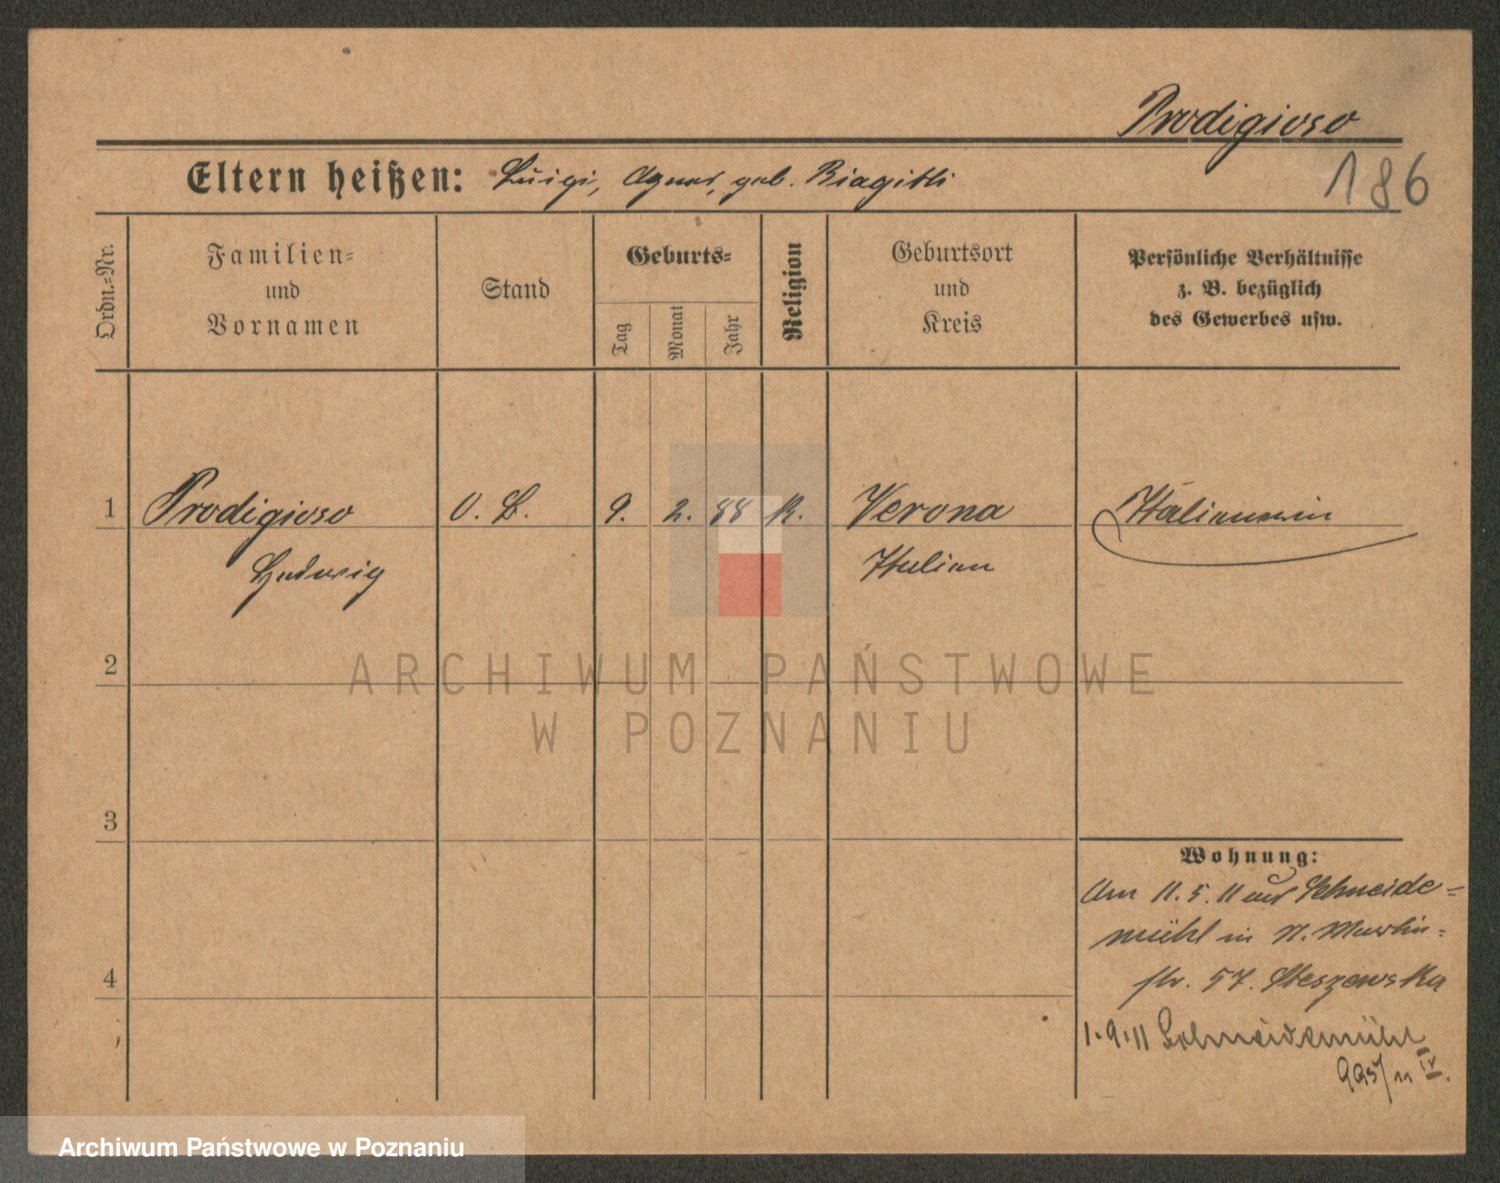 Prodigioso
186
Eltern heißen: Luigi, Agnes, geb. Biagitti
Ordn.=Nr.
Familien=
und
Vornamen
Stand
Geburts=
Tag
Monat
Jahr
Religion
Geburtsort
und
Kreis
Persönliche Verhältnisse
z. B. bezüglich
des Gewerbes usw.
1 Prodigioso O. L. 9. 2. 88 K. Verona
Ludwig Italien
2
3
4
Wohnung:
Am 11.5.11 aus Schneide=
mühl in N.
str. 57.
1.9.11 Schneidemühl
995/11 IX.
ARCHIWUM PAŃSTWOWE
W POZNANIU
Archiwum Państwowe w Poznaniu